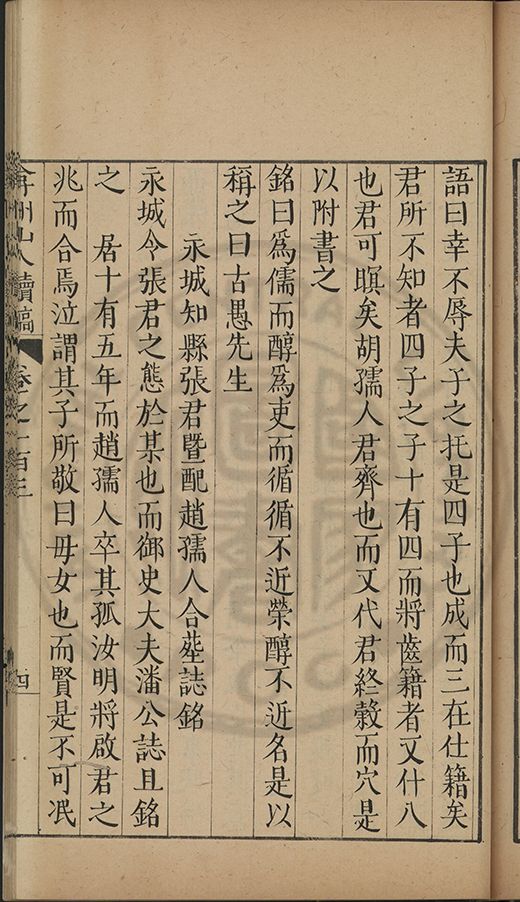 語曰幸不辱夫子之托是四子也成而三在仕籍矣
君所不知者四子之子十有四而將齒籍者又什八
也君可瞑矣胡孺人君齊也而又代君終榖而穴是
以附書之
銘曰爲儒而醇爲吏而循循不近榮醇不近名是以
稱之曰古愚先生
永城知縣張君暨配趙孺人合塟誌銘
永城令張君之態於某也而御史大夫潘公誌且銘
之 居十有五年而趙孺人卒其孤汝明將啟君之
兆而合焉泣謂其子所敬曰毋女也而賢是不可冺
弇州山人續稿 卷之一百三 四